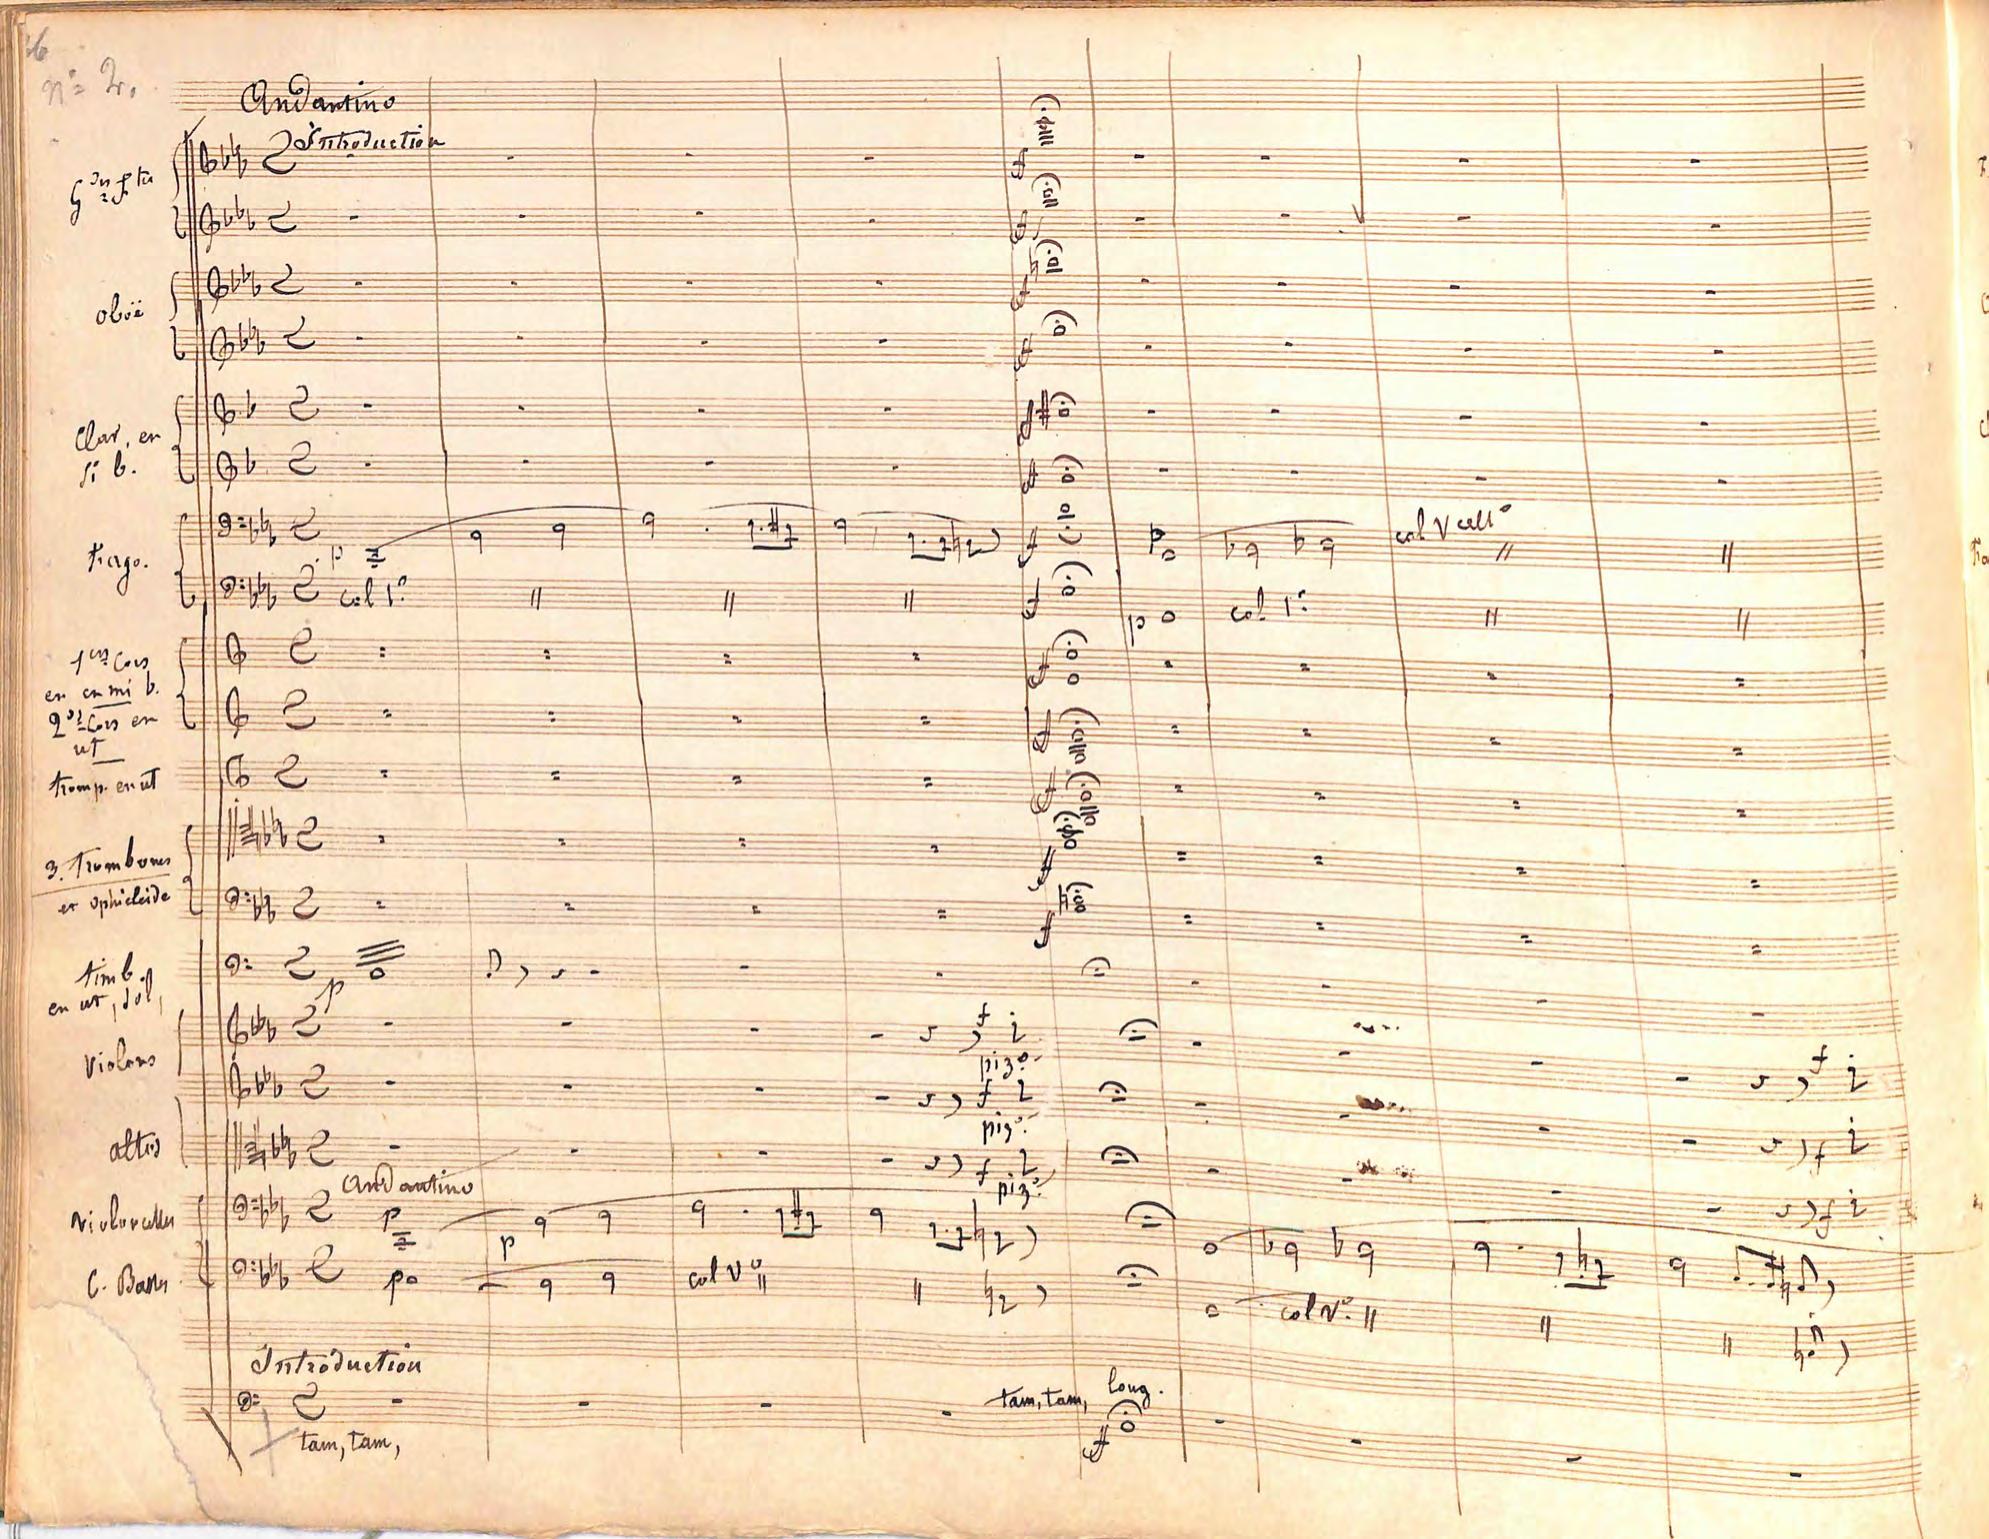 6
Nº 2.
Andantino
Introduction
oboë
Clar. en
si b.
Fago.
p
col Vcello
col 1º
p
col 1º
1ers Cors
en en mi b.
2ds Cors en
ut
tromp. en ut
3. Trombones
et ophicleide
timb.
en ut, sol,
p
Violons
f
piz.
f
f
piz.
altos
f
f
piz.
f
Andantino
violoncelles
p
p
C. Basse
p
col Vº
col Vº
Introduction
tam, tam, long.
f
tam, tam,